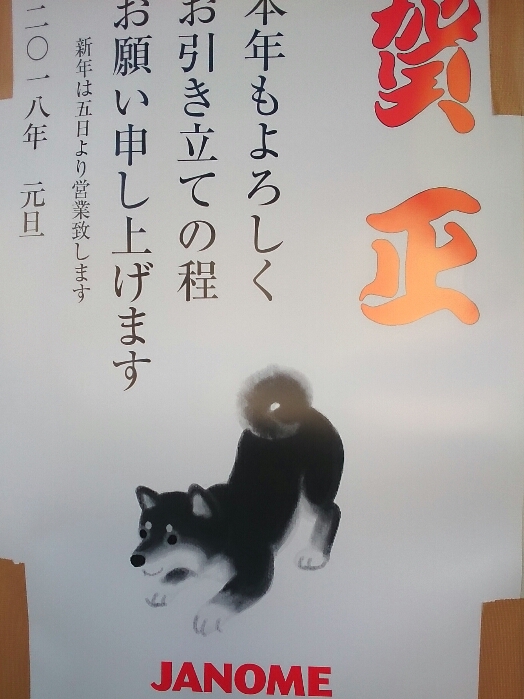 賀正
本年もよろしく
お引き立ての程
お願い申し上げます
新年は五日より営業致します
二〇一八年 元旦
JANOME